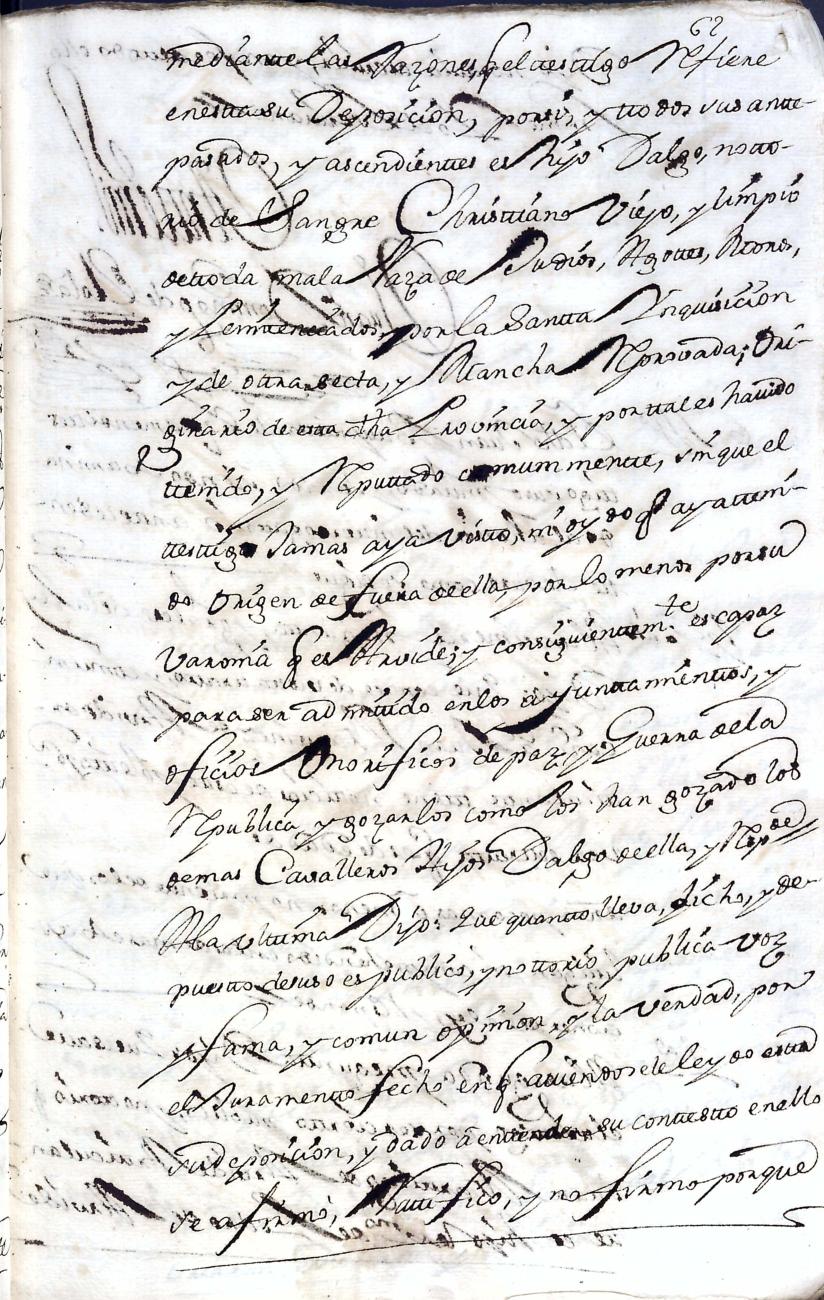 62
mediante las Razones q el testigo Refiere
en esta su Deposicion, por si, y ttodos sus ante-
pasados, y ascendienttes es hijo Dalgo, notto-
rio de Sangre Christtiano Viejo, y limpio
de ttoda mala Raza de Judios, Agottes, Moros,
y Penittenciados por la Santta Ynquisicion
y de ottra secta, y Mancha Reprovada; Ori-
ginario de esta dha Provincia, y por ttal es havido
ttenido, y Reputtado comunmentte, sin que el
testigo Jamas aya Vistto, ni oydo q ayatteni-
do Origen de fuera de ella, por lo menos por su
Varonia q es Arvide; y consiguientem.te es capaz
para ser admittido en los ayunttamienttos, y
oficios Onorificos de paz, y Guerra de la
Republica, y gozarlos como los han gozado los
demas Cavalleros Hijos Dalgo de ella, y Resp.de
A la Ulttima Dijo: Que quantto lleva, dicho, y de-
puestto desuso es publico, y nottorio publica voz
y fama, y comun opinion, y la verdad, por
el Juramentto fecho en q haviendosele leydo estta
su deposicion, y dado a entender su conttestto en ello
se afirmó, Rattifico, y no firmo porque